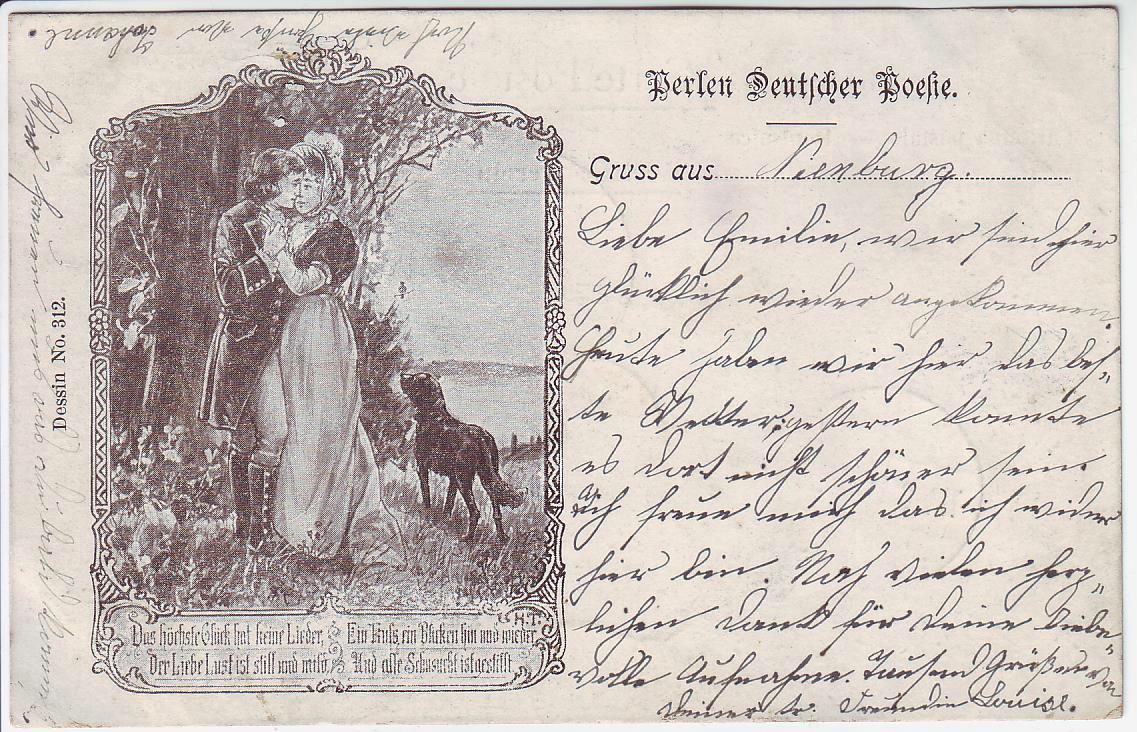 Perlen Deutscher Poesie.
Gruss aus Nienburg.
Liebe Emilie, wir sind hier
glücklich wieder angekommen.
Heute haben wir hier das bes-
te Wetter, gestern konnte
es dort nicht schöner sein.
Ich freue mich das ich wider
hier bin. Noch vielen herz-
lichen Dank für deine liebe-
volle Aufnahme. Tausend Grüße von
deiner tr. Freundin Louise.
Dessin No. 312.
H.T.
Das höchste Glück hat keine Lieder,
Der Liebe Lust ist still und mild,
Ein Kuß, ein Blicken hin und wieder,
Und alle Sehnsucht ist gestillt.
Noch viele Grüße von Johanne.